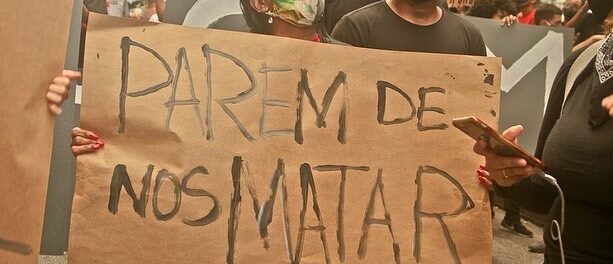 PAREM DE
NOS MATAR